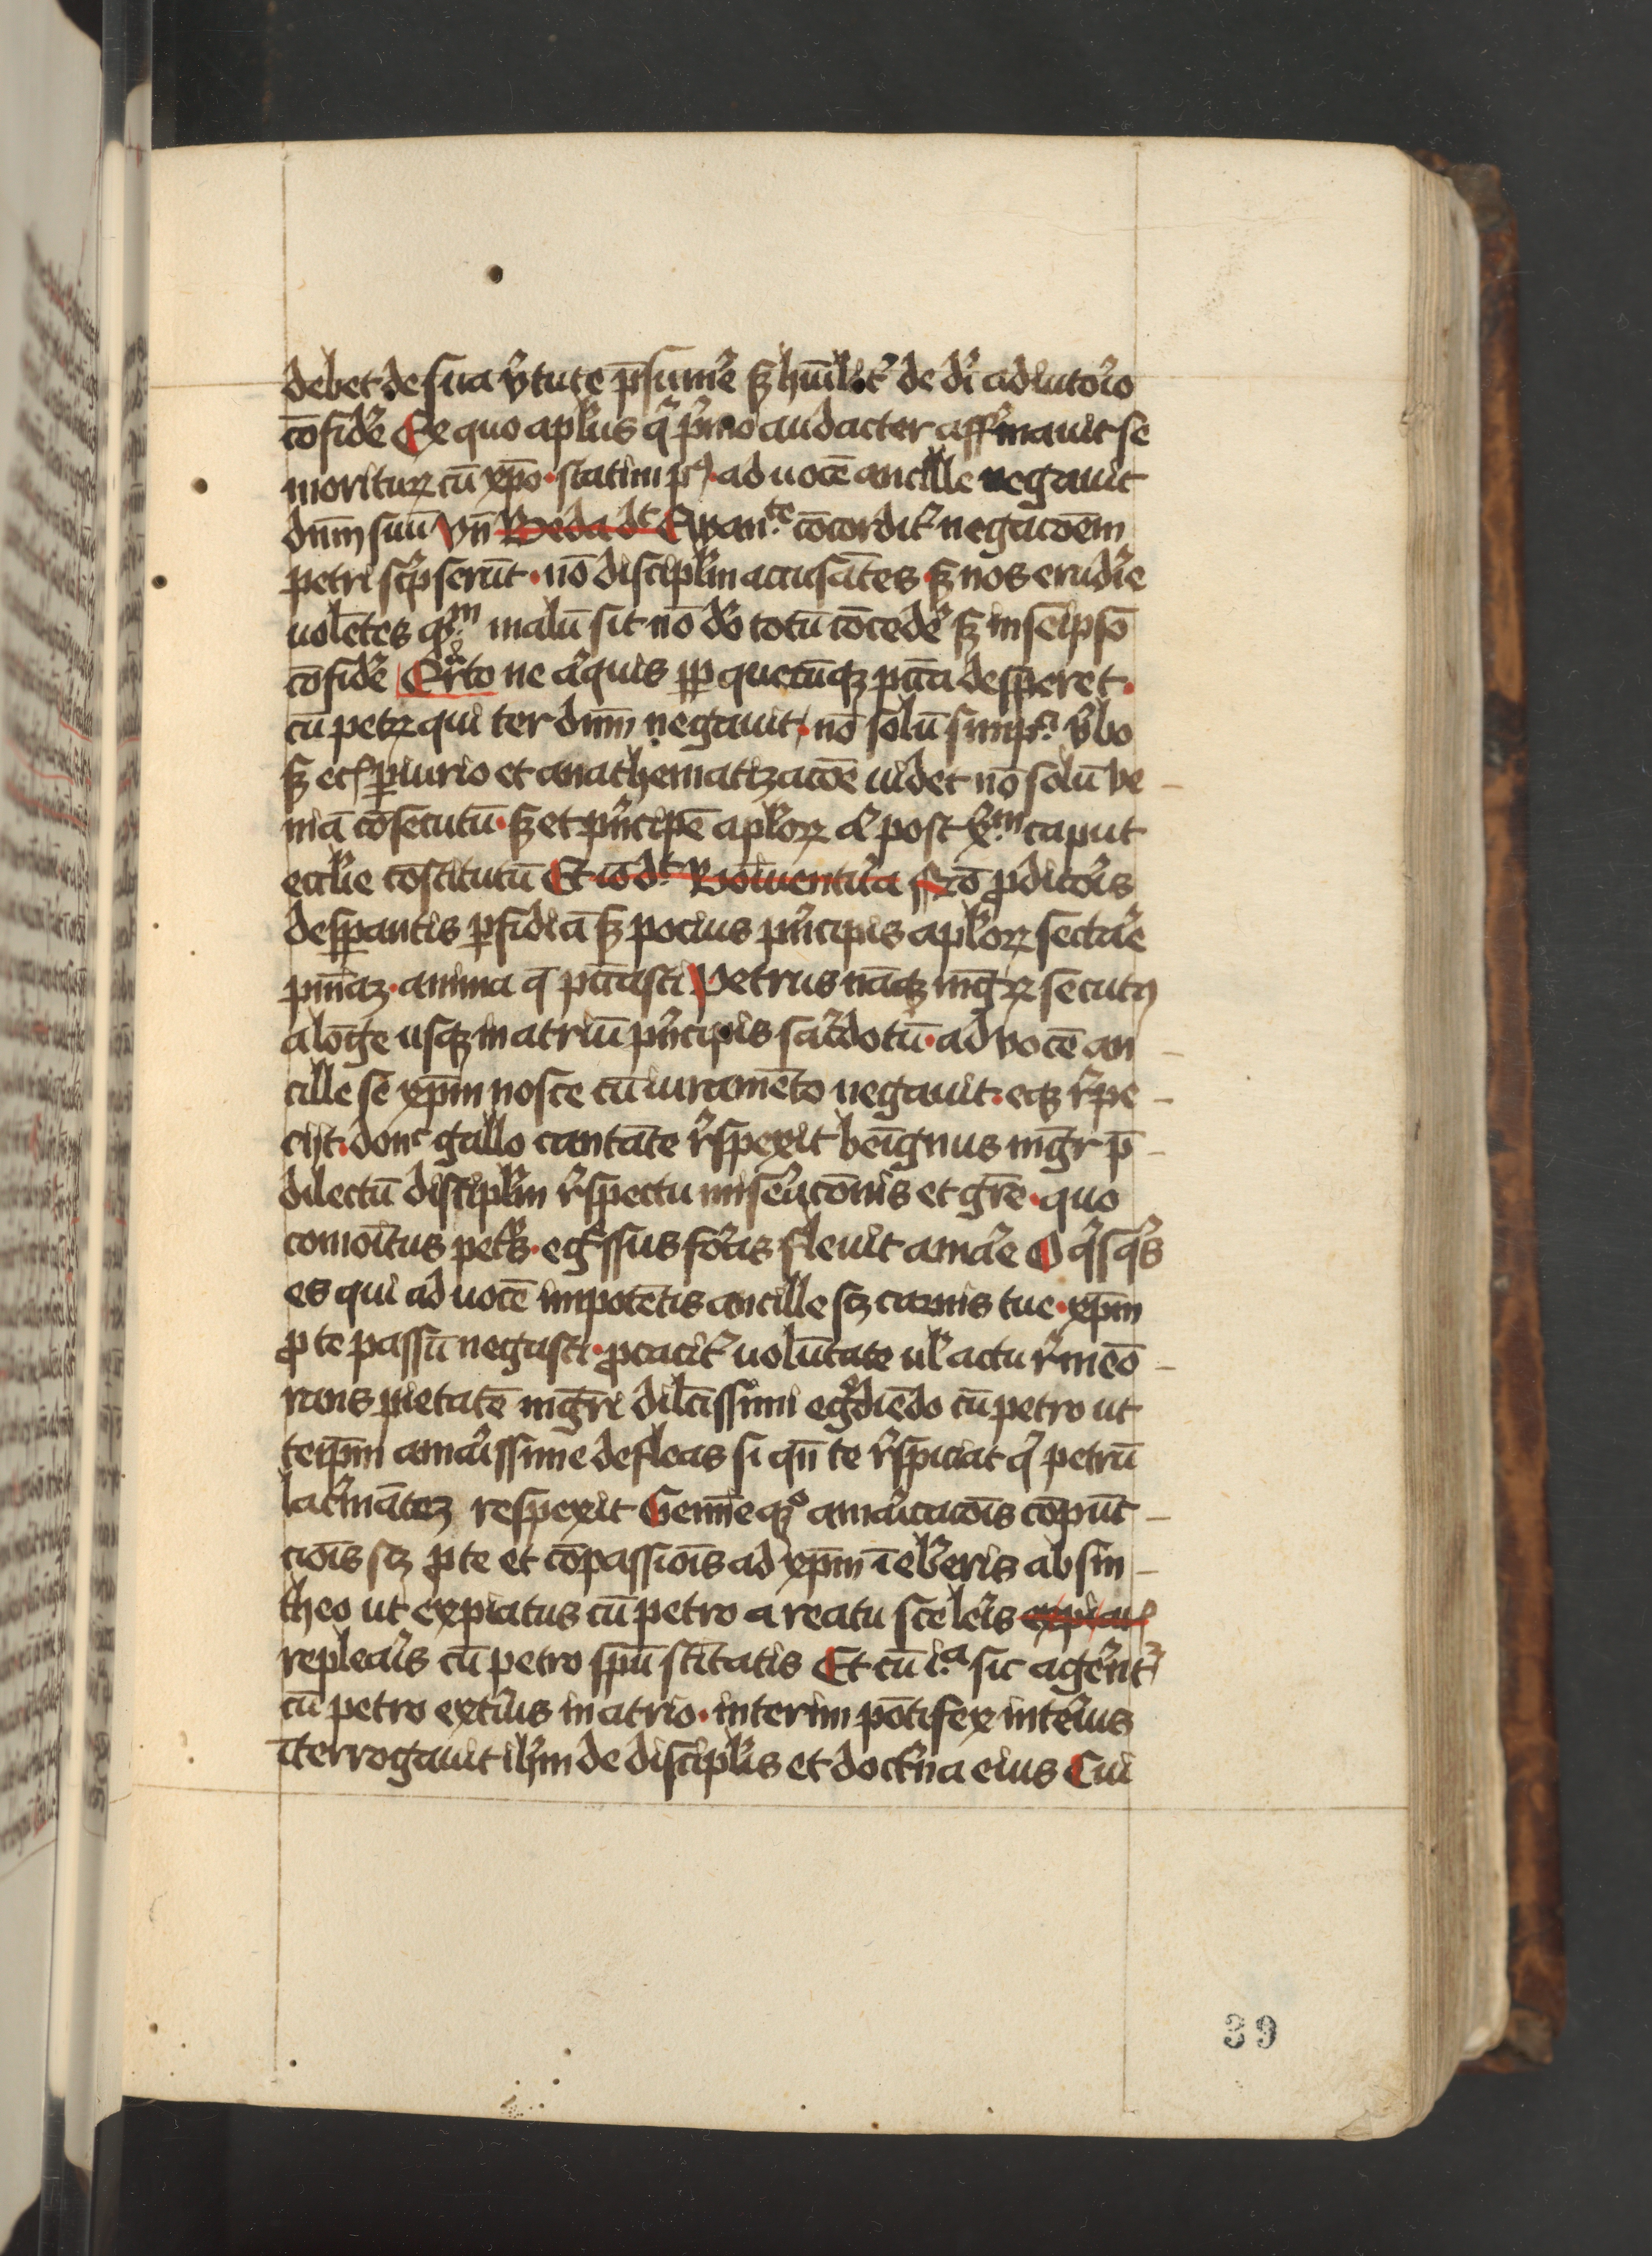 debet de sua v̾tute p̄sume᷑ sꝫ hūilit᷑ de dī adiuto᷑io
cōfide᷑ Ex quo apl̓us q̄ p̓mo audacter aff᷑mauit se
moriturꝝ cū xp̄o · statim pꝰ · ad uocē ancille negauit
dn̄m suū vn̄ Beda dt Ewanᵗᵉ cōcordit᷑ negacōem
petri sc᷑pserūt · nō discipl̓m accusātes · sꝫ nos erudi᷑e
uolētes qͫ malū sit nō dō totū cōcede᷑ sꝫ in seip̄sō
cōfide᷑ Qrto ne a᷑quis ꝓp quecūqꝫ pctā desperet ·
cū petrꝝ qui ter dn̄m negauit · nō solū simpͥ v̾bo
sꝫ ecꝭ ꝑiurio et anathematizacōe uidet nō solū ve -
niā cōsecutū · sꝫ et pn̓cipē apl̓oꝝ ac̓ post xͫ caput
eccl̓ie cōstitutū Et iō dt Bōauentu᷑a Nō ꝓdito᷑is
desꝑantis ꝑfidiā sꝫ pocius pn̓cipis apl̓oꝝ secta᷑e
pn̄iaꝫ · anima q̄ pctāsti Petrus nāqꝫ mgr̄ꝝ secutꝰ
alōge usqꝫ in atriū pn̓cipis sac᷑dotū · ad vocē an -
cille se xp̄m nosce cū iuramēto negauit · eqꝫ r᷑pe -
ciit · donc gallo cantāte r᷑spexit beīgnus mgr̄ p̄ -
dilectū discipl̓m r᷑spectu mise᷑acōnis et grē · quo
comoītus petr̓ · eg᷑ssus fo᷑as fleuit ama᷑e O q̓sq̓s
es qui ad uocē impotētis ancille scꝫ carnis tue · xp̄m
ꝓ te passū negasti · ꝓcacit᷑ uolūtate ul̓ actu r᷑meō -
rans pietatē mgr̄i dilc̄issimi eg᷑diēdo cū petro ut
teip̄m ama᷑issime defleas si qn̄ te r᷑spiciat q̓ petrū
lac᷑mātez respexit Gemīeqꝫ ama᷑icacōis cōpūc -
ciōis scꝫ ꝓ te et cōpassiōis ad xp̄m īeb᷑eris absin -
theo ut expiatus cū petro a reatu scele᷑is expiatꝰ
replea᷑is cū petro spū sc̄itatis Et cū iͣ sic age᷑nt᷑
cū petro exte᷑ius in atrio · interim pōtifex inte᷑ius
īterrogauit ih̄m de discipl̓is et doct᷑ina eius Cui
39